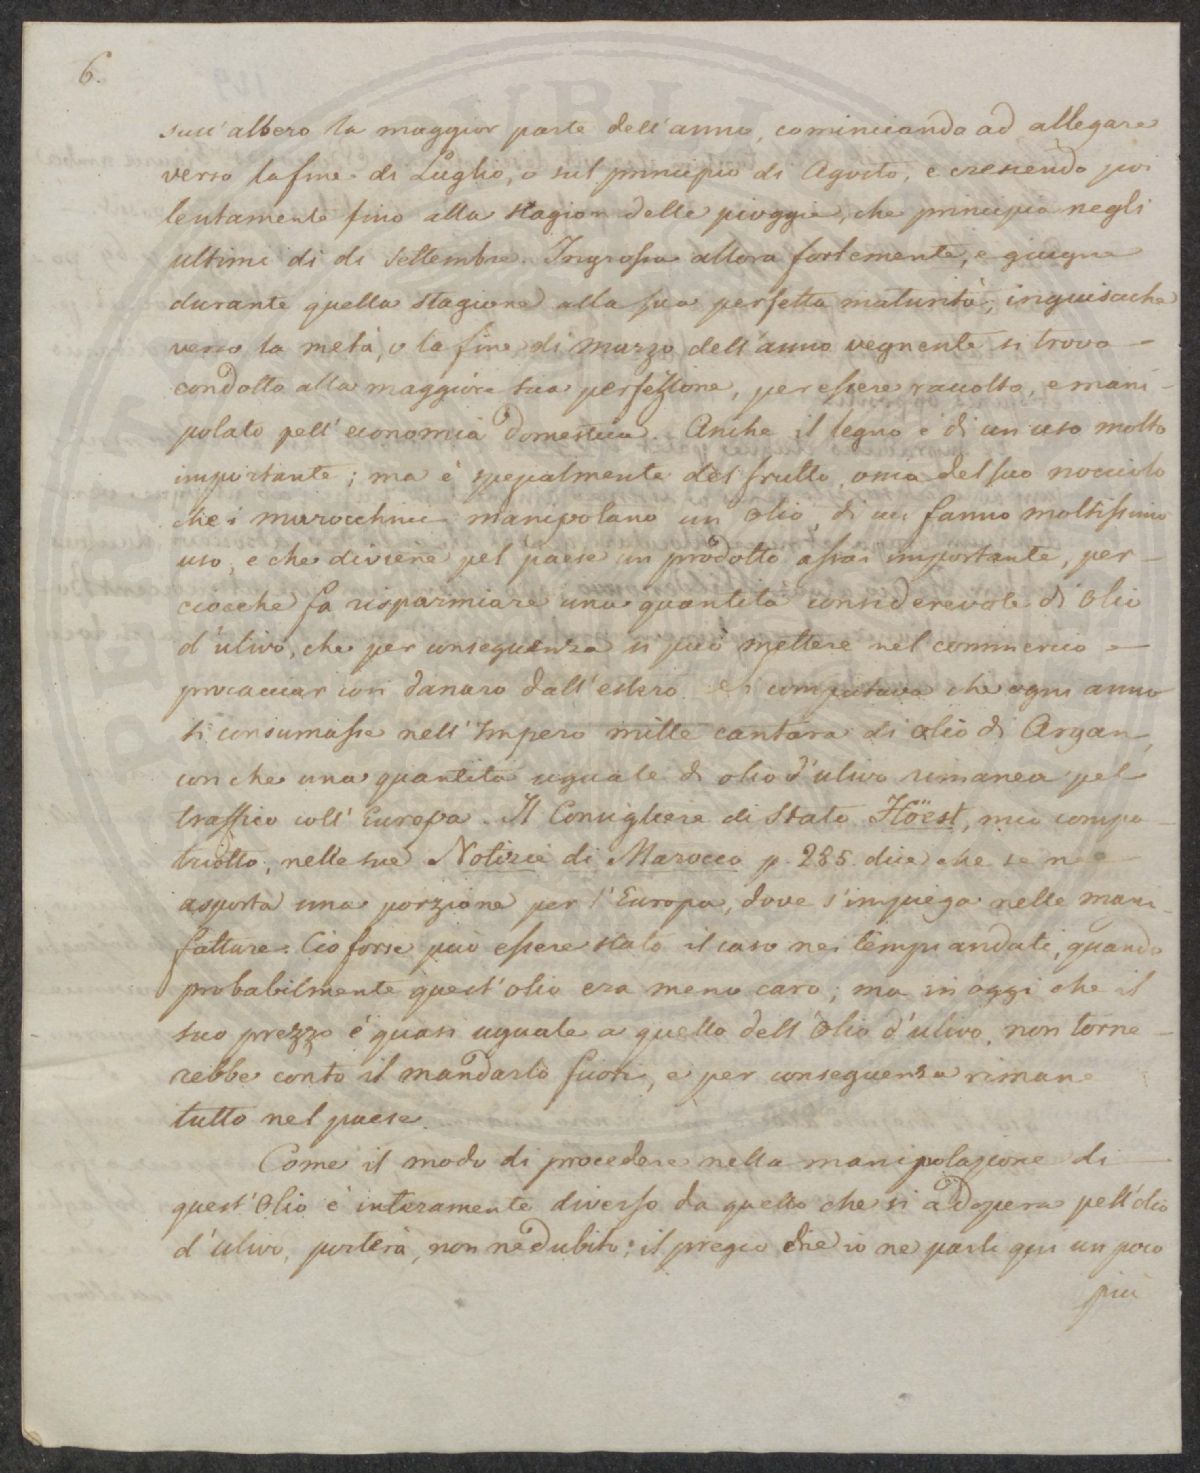 6.
sull'albero la maggior parte dell'anno, cominciando ad allegare
verso la fine di Luglio, o sul principio di Agosto, e crescendo poi
lentamente fino alla stagion delle pioggie, che principia negli
ultimi dì di Settembre. Ingrossa allora fortemente, e giugne
durante quella stagione alla sua perfetta maturità; inguisache
verso la metà, o la fine di Marzo dell'anno vegnente si trova
condotto alla maggiore sua perfezione, per essere raccolto, e mani-
polato pell'economia domestica. Anche il legno è di un uso molto
importante; ma è spezialmente del frutto, o sia del suo nocciolo
che i marocchini manipolano un olio, di cui fanno moltissimo
uso, e che diviene pel paese un prodotto assai importante, per-
ciocchè fa risparmiare una quantità considerevole di olio
d'ulivo, che per conseguenza si può mettere nel commercio e
procacciar con danaro dall'estero. Si computava che ogni anno
si consumasse nell'Impero mille cantara di olio di Argan,
con che una quantità uguale di olio d'ulivo rimanea pel
traffico coll'Europa. Il Consigliere di Stato Höest, mio compa-
triotto, nelle sue Notizie di Marocco p. 285. dice che se ne
asporta una porzione per l'Europa, dove s'impiega nelle mani-
fatture. Ciò forse può essere stato il caso nei tempi andati, quando
probabilmente quest'olio era meno caro; ma in oggi che il
suo prezzo è quasi uguale a quello dell'olio d'ulivo, non torne-
rebbe conto il mandarlo fuori, e per conseguenza rimane
tutto nel paese.
Come il modo di procedere nella manipolazione di
quest'olio è interamente diverso da quello che si adopera pell'olio
d'ulivo, porterà, non ne dubito, il pregio che io ne parli qui un poco
più